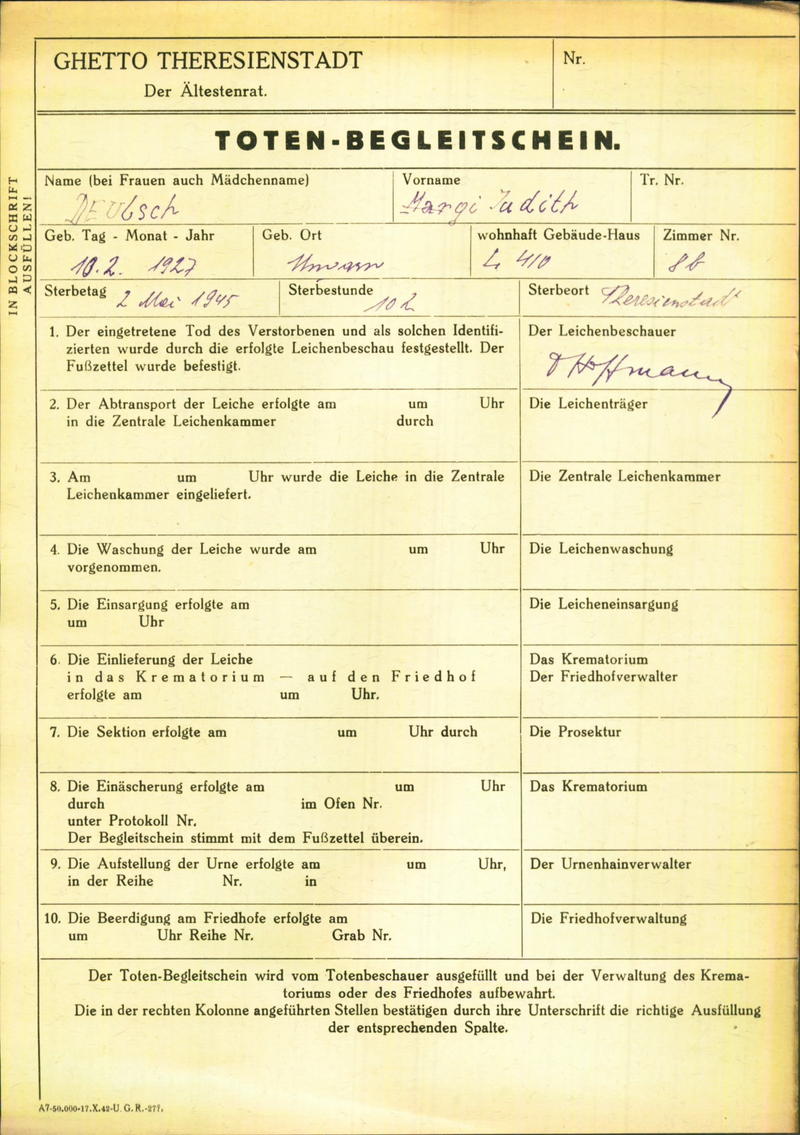 GHETTO THERESIENSTADT
Der Ältestenrat.
Nr.
TOTEN-BEGLEITSCHEIN.
IN BLOCKSCHRIFT
AUSFÜLLEN!
Name (bei Frauen auch Mädchenname)
Vorname
Tr. Nr.
Margi Judith
Geb. Tag - Monat - Jahr
Geb. Ort
wohnhaft Gebäude-Haus
Zimmer Nr.
10.2. 1927
L 410
8b
Sterbetag 2 Mai 1945
Sterbestunde 10
Sterbeort Theresienstadt
1. Der eingetretene Tod des Verstorbenen und als solchen Identifi-
zierten wurde durch die erfolgte Leichenbeschau festgestellt. Der
Fußzettel wurde befestigt.
Der Leichenbeschauer
Hoffmann
2. Der Abtransport der Leiche erfolgte am um Uhr
in die Zentrale Leichenkammer durch
Die Leichenträger
3. Am um Uhr wurde die Leiche in die Zentrale
Leichenkammer eingeliefert.
Die Zentrale Leichenkammer
4. Die Waschung der Leiche wurde am um Uhr
vorgenommen.
Die Leichenwaschung
5. Die Einsargung erfolgte am
um Uhr
Die Leicheneinsargung
6. Die Einlieferung der Leiche
in das Krematorium — auf den Friedhof
erfolgte am um Uhr.
Das Krematorium
Der Friedhofverwalter
7. Die Sektion erfolgte am um Uhr durch
Die Prosektur
8. Die Einäscherung erfolgte am um Uhr
durch im Ofen Nr.
unter Protokoll Nr.
Der Begleitschein stimmt mit dem Fußzettel überein.
Das Krematorium
9. Die Aufstellung der Urne erfolgte am um Uhr,
in der Reihe Nr. in
Der Urnenhainverwalter
10. Die Beerdigung am Friedhofe erfolgte am
um Uhr Reihe Nr. Grab Nr.
Die Friedhofverwaltung
Der Toten-Begleitschein wird vom Totenbeschauer ausgefüllt und bei der Verwaltung des Krema-
toriums oder des Friedhofes aufbewahrt.
Die in der rechten Kolonne angeführten Stellen bestätigen durch ihre Unterschrift die richtige Ausfüllung
der entsprechenden Spalte.
A7-50.000-17.X.42-U. G. R.